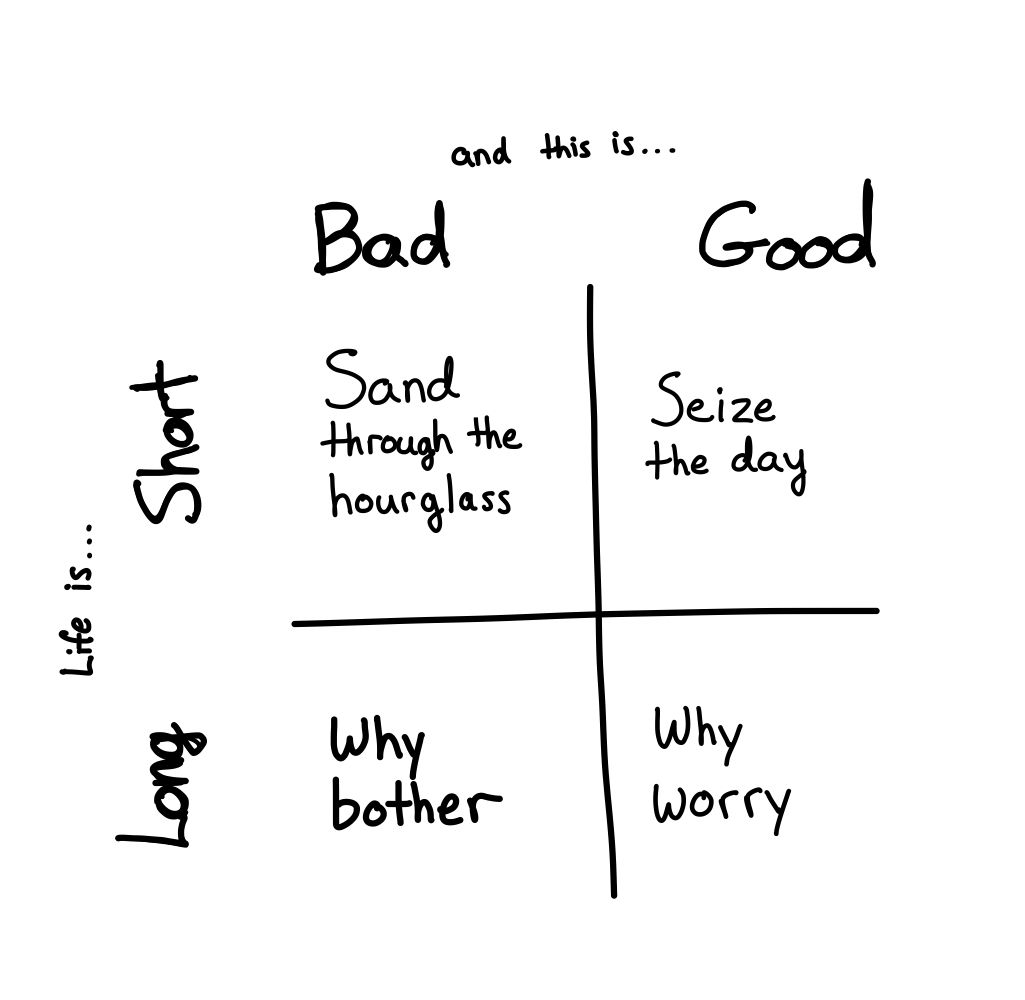 and this is...
Bad
Good
Life is...
Short
Sand
through the
hourglass
Seize
the day
Long
Why
bother
Why
worry